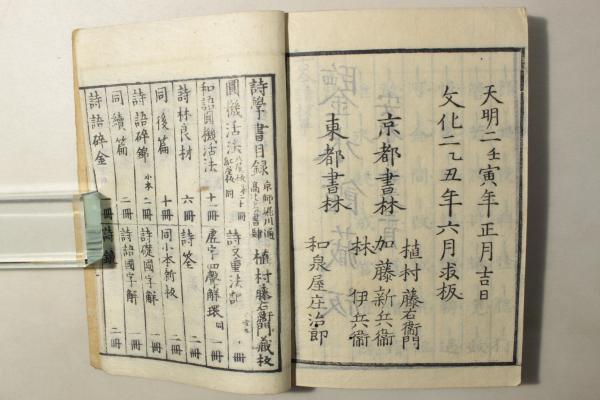 天明二壬寅年正月吉日
文化二乙丑年六月求板
京都書林
植村藤右衞門
加藤新兵衞
林伊兵衞
東都書林
和泉屋庄治郎
詩學書目録
植村藤右衞門藏板
圓機活法
詩文重法記
冊
和語圓機活法
十一冊
虚字四聲解環
一冊
詩林良材
六冊
詩筌
一冊
同後篇
十冊
同小本新板
一冊
詩語碎錦
小本
二冊
詩礎國字解
一冊
同續篇
二冊
詩語國字解
二冊
詩語碎金
冊
二冊